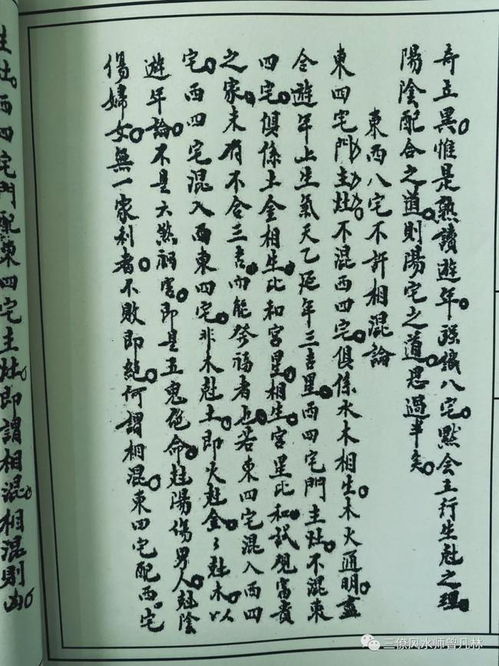 奇立異惟是熟讀遊年强識八宅默会五行生尅之理
陽陰配合之道則陽宅之道思過半矣
東西八宅不許相混論
東四宅門主灶不混西四宅俱係水木相生木火通明盡
合遊年上生氣天乙延年三吉星西四宅門主灶不混東
四宅俱係土金相生比和宮星相生宮星比和試观富貴
之家未有不合三吉而能發福者也若東四宅混入西四
宅西四宅混入西東四宅非木尅土即火尅金々尅木以
遊年論不是六煞禍害即是五鬼絶命尅陽傷男人尅陰
傷婦女無一家利者不敗即絶何謂相混東四宅配西宅
主灶西四宅門配東四宅主灶即謂相混相混則凶
三僚风水师曾凡林